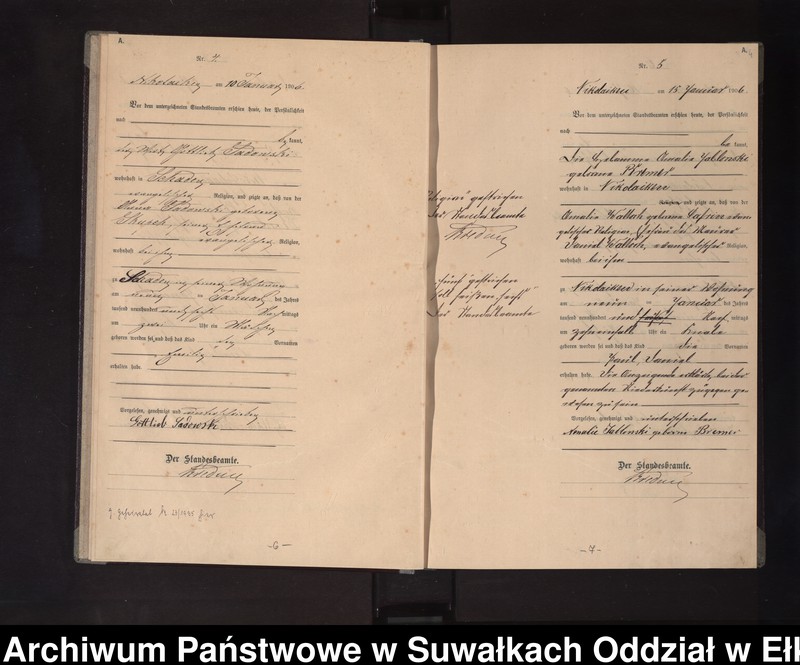 A.
Nr. 4.
Nikolaiken am 10 Januar 1906.
Vor dem unterzeichneten Standesbeamten erschien heute, der Persönlichkeit
nach
kannt,
Gottlieb Sadowski
wohnhaft in
evangelischer Religion, und zeigte an, daß von der
Sadowski geborene
evangelischer Religion,
wohnhaft bei ihm
zu
am neun ten Januar des Jahres
tausend neunhundert und sechs Nachmittags
um zwei Uhr ein Mädchen
geboren worden sei und daß das Kind den Vornamen
Emilie
erhalten habe.
Vorgelesen, genehmigt und unterschrieben
Gottlieb Sadowski
Der Standesbeamte.
-6-
Religion" gestrichen
Der Standesbeamte
"fünf" gestrichen
soll heißen "sechs"
Der Standesbeamte
A.
Nr. 5
Nikolaiken am 15 Januar 1906.
Vor dem unterzeichneten Standesbeamten erschien heute, der Persönlichkeit
nach
be kannt,
Die Hebamme Amalie Jablonski
geborene Bremer
wohnhaft in Nikolaiken
Religion, und zeigte an, daß von der
Amalie Walloch geborene evan
gelischer Religion, Ehefrau des Maurer
Daniel Walloch, evangelischer Religion,
wohnhaft bei ihm
zu Nikolaiken in seiner Wohnung
am neun ten Januar des Jahres
tausend neunhundert und fünf Nach mittags
um zehneinhalb Uhr ein Knabe
geboren worden sei und daß das Kind die Vornamen
Paul Daniel
erhalten habe. Die Anzeigende erklärte, bei der
genannten Niederkunft zugegen ge
wesen zu sein
Vorgelesen, genehmigt und unterschrieben
Amalie Jablonski geborene Bremer
Der Standesbeamte.
-7-
Archiwum Państwowe w Suwałkach Oddział w Eł